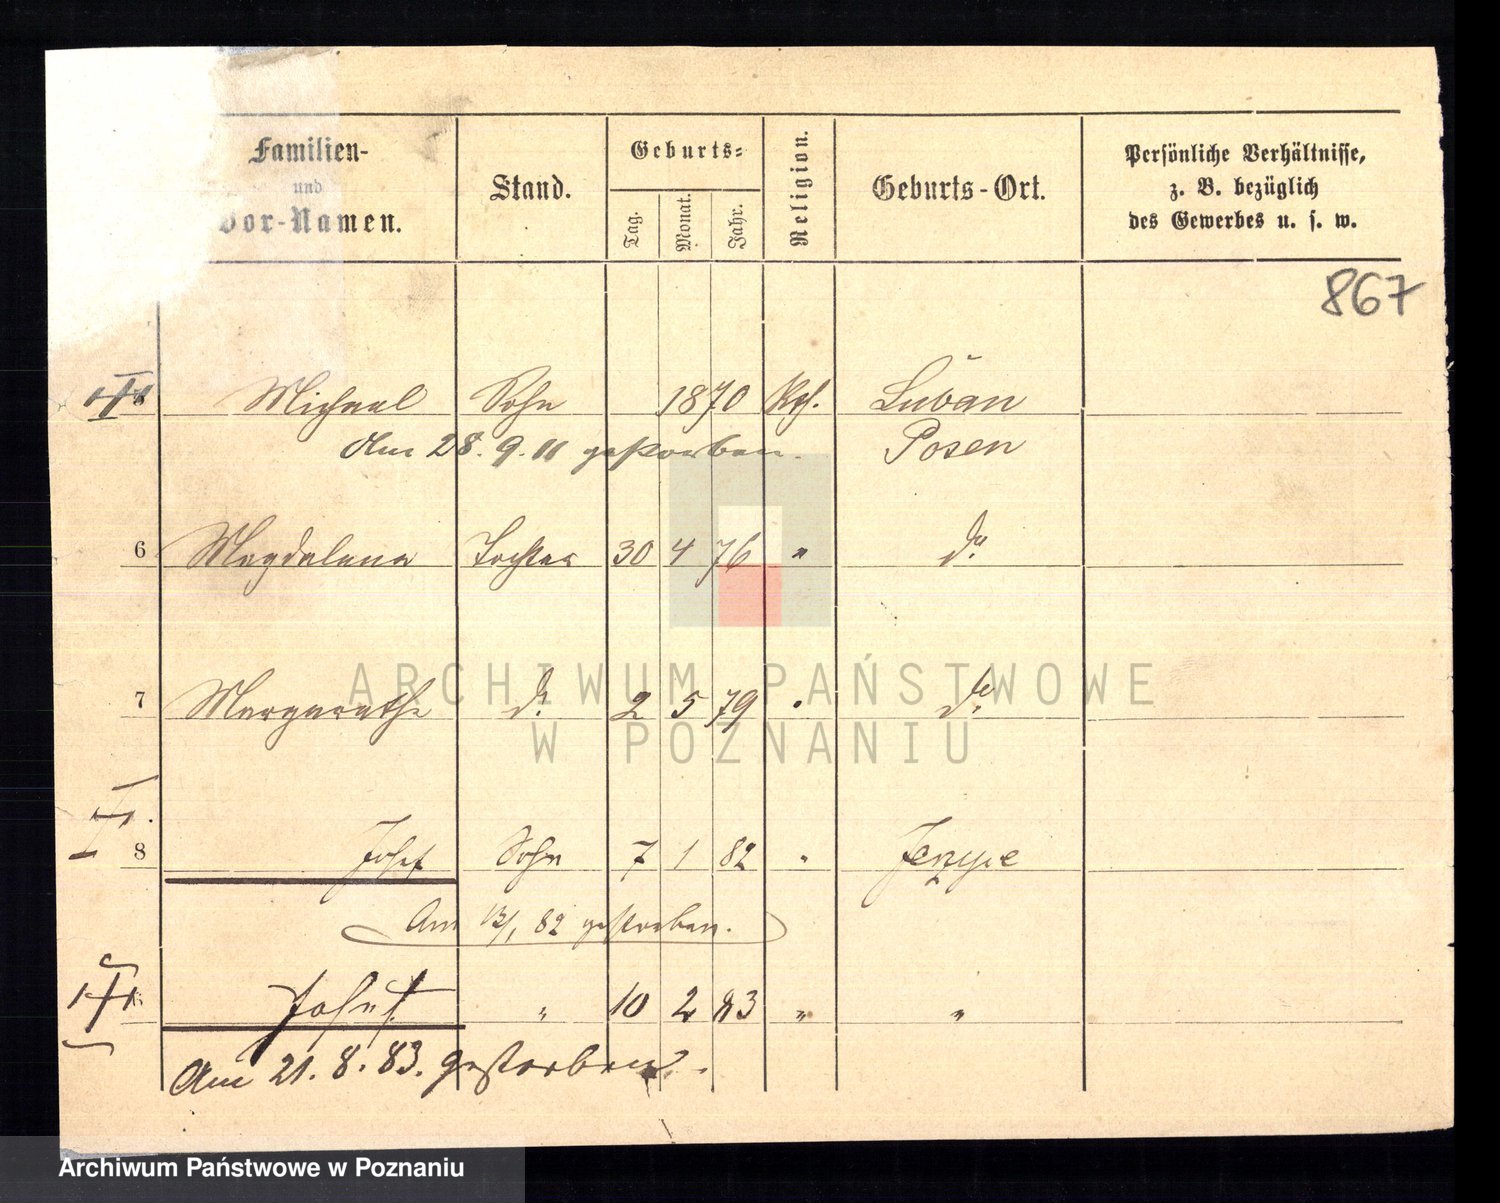 Familien-
und
Vor-Namen.
Stand.
Geburts=
Tag.
Monat.
Jahr.
Religion.
Geburts-Ort.
Persönliche Verhältnisse,
z. B. bezüglich
des Gewerbes u. s. w.
867
Michael Sohn 1870 Kth. Luban
Am 28. 9. 11 gestorben. Posen
6 Magdalena Tochter 30 4 76 " do
7 Margarethe do 2 5 79 " do
8 Josef Sohn 7 1 82 "
Am 13/1 82 gestorben.
Josef " 10 2 83 " "
Am 21. 8. 83. gestorben.
ARCHIWUM PAŃSTWOWE
W POZNANIU
Archiwum Państwowe w Poznaniu